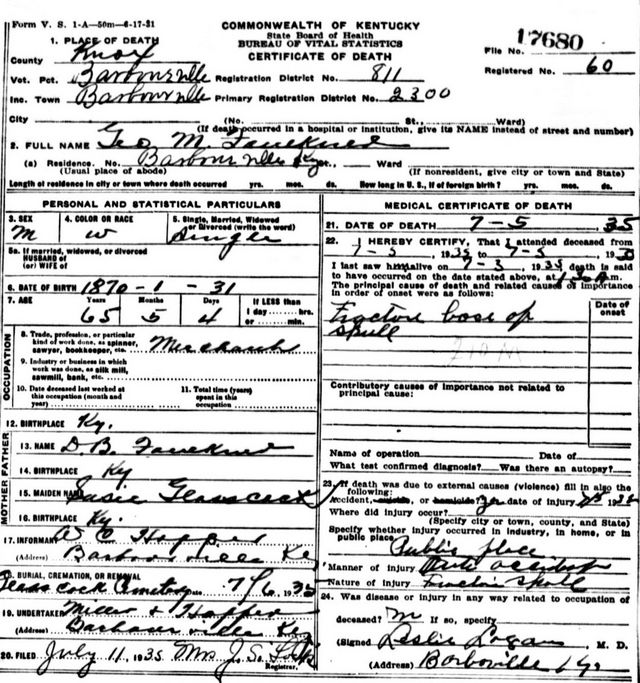 Form V. S. 1-A—50m—6-17-31
COMMONWEALTH OF KENTUCKY
State Board of Health
BUREAU OF VITAL STATISTICS
CERTIFICATE OF DEATH
17680
File No.
Registered No. 60
1. PLACE OF DEATH
County Knox
Vot. Pct. Barbourville Registration District No. 811
Inc. Town Barbourville Primary Registration District No. 2300
City (No. St., Ward)
(If death occurred in a hospital or institution, give its NAME instead of street and number)
2. FULL NAME Geo M. Faulkner
(a) Residence. No. Barbourville Ky. Ward
(Usual place of abode) (If nonresident, give city or town and State)
Length of residence in city or town where death occurred yrs. mos. ds. How long in U. S., if of foreign birth? yrs. mos. ds.
PERSONAL AND STATISTICAL PARTICULARS
3. SEX 4. COLOR OR RACE 5. Single, Married, Widowed
or Divorced (write the word)
M W Single
5a. If married, widowed, or divorced
HUSBAND of
(or) WIFE of
6. DATE OF BIRTH 1870-1-31
7. AGE Years Months Days If LESS than
1 day hrs.
or min.
65 5 4
OCCUPATION
8. Trade, profession, or particular
kind of work done, as spinner,
sawyer, bookkeeper, etc. Merchant
9. Industry or business in which
work was done, as silk mill,
sawmill, bank, etc.
10. Date deceased last worked at
this occupation (month and
year)
11. Total time (years)
spent in this
occupation
12. BIRTHPLACE Ky.
FATHER
13. NAME D. B. Faulkner
14. BIRTHPLACE Ky
MOTHER
15. MAIDEN NAME Susie Glasscock
16. BIRTHPLACE Ky.
17. INFORMANT Hopper
(Address) Barbourville Ky
18. BURIAL, CREMATION, OR REMOVAL
Glasscock Cemetery 7/6 1935
19. UNDERTAKER Miller & Hopper
(Address) Barbourville Ky
20. FILED July 11, 1935 Mrs J. S.
Registrar.
MEDICAL CERTIFICATE OF DEATH
21. DATE OF DEATH 7-5 35
22. I HEREBY CERTIFY, That I attended deceased from
7-5, 1935 to 7-5, 19
I last saw him alive on 7-5, 1935 death is said
to have occurred on the date stated above, at m.
The principal cause of death and related causes of importance
in order of onset were as follows:
Date of
onset
Fracture base of
skull
Contributory causes of importance not related to
principal cause:
Name of operation Date of
What test confirmed diagnosis? Was there an autopsy?
23. If death was due to external causes (violence) fill in also the
following:
Accident, suicide, or homicide? date of injury 19
Where did injury occur?
(Specify city or town, county, and State)
Specify whether injured occurred in industry, in home, or in
public place
Public place
Manner of injury Auto accident
Nature of injury Fracture skull
24. Was disease or injury in any way related to occupation of
deceased? If so, specify
(Signed Leslie Logan, M. D.
(Address) Barboville Ky